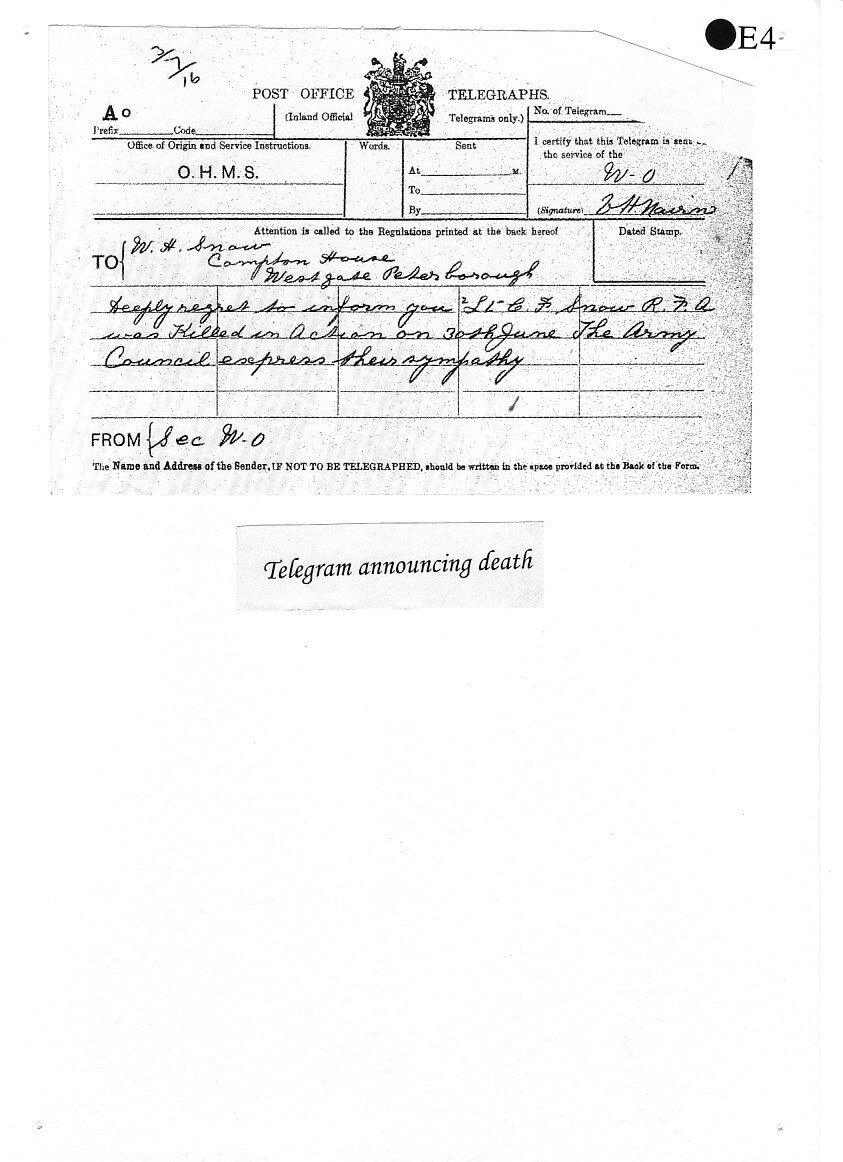 E4
3/7/16
POST OFFICE TELEGRAPHS.
(Inland Official Telegrams only.)
No. of Telegram
Ao
Prefix Code
Office of Origin and Service Instructions.
O.H.M.S.
Words.
Sent
At M.
To
By
I certify that this Telegram is sent
the service of the
W-O
(Signature)
Attention is called to the Regulations printed at the back hereof
Dated Stamp.
TO { W. H. Snow
Compton House
Westgate Peterborough
Deeply regret to inform you 2 Lt C F Snow R.F.A
was Killed in Action on 30th June The Army
Council express their sympathy
FROM { Sec W-O
The Name and Address of the Sender, IF NOT TO BE TELEGRAPHED, should be written in the space provided at the Back of the Form.
Telegram announcing death